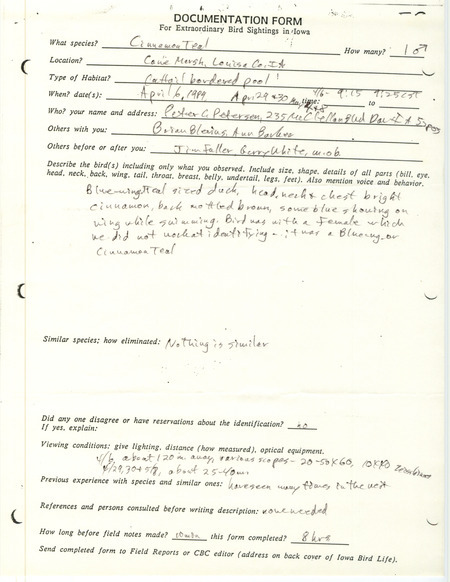 DOCUMENTATION FORM
For Extraordinary Bird Sightings in Iowa
What species? Cinnamon Teal How many? 1♂
Location? Cone Marsh, Louisa Co. IA
Type of Habitat? Cattail bordered pool
When? date(s): April 6, 1989, Apr 29 & 30 time: 4/6- 9:15 to 9:25 CST
Who? your name and address: Peter C. Petersen, 235 McClellan Blvd Dav IA
Others with you: Brian Blevins, Ann Barker
Others before or after you: Jim Fuller Gerry White, m.ob.
Describe the bird(s) including only what you observed. Include size, shape, details of all parts (bill, eye,
head, neck, back, wing, tail, throat, breast, belly, undertail, legs, feet). Also mention voice and behavior.
Blue-wing Teal sized duck, head, neck & chest bright
cinnamon, back mottled brown, some blue showing on
wing while swimming. Bird was with a female which
we did not work at identifying - it was a Bluewing or
Cinnamon Teal
Similar species; how eliminated: Nothing is similar
Did any one disagree or have reservations about the identification? no
If yes, explain:
Viewing conditions: give lighting, distance (how measured), optical equipment.
4/6 about 120 m away, various scopes - 20-50X60, 10X40 Zeiss
4/29,30 + 5/8, about 25-40m.
Previous experience with species and similar ones: have seen many times in the west
References and persons consulted before writing description: none needed
How long before field notes made? 10 min this form completed? 8 hrs
Send completed form to Field Reports or CBC editor (address on back cover of Iowa Bird Life).